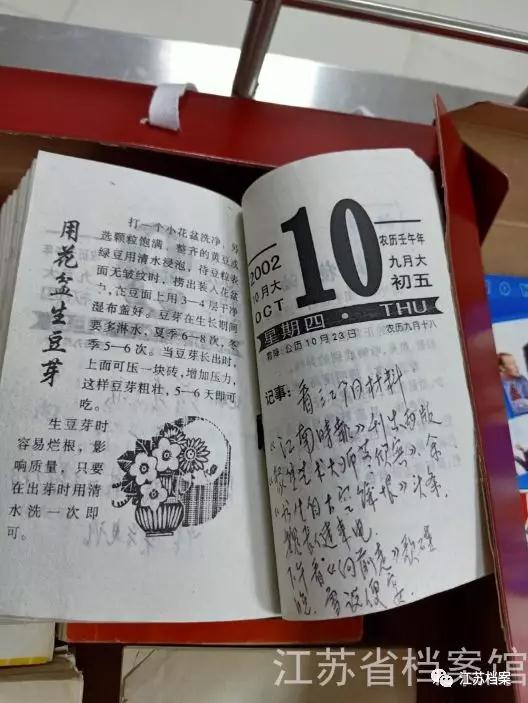 用花盆生豆芽
打一个小花盆洗净，另
选颗粒饱满，整齐的黄豆或
绿豆用清水浸泡，待豆粒表
面无皱纹时，捞出装入花盆
中，在豆面上用3—4层干净
湿布盖好。豆芽在生长期间
要多淋水，夏季6—8次，冬
季5—6次。当豆芽长出时，
上面可压一块砖，增加压力，
这样豆芽粗壮，5—6天即可
吃。
生豆芽时
容易烂根，影
响质量，只要
在出芽时用清
水洗一次即
可。
2002
10月大
OCT
10
农历壬午年
九月大
初五
星期四·THU
霜降：公历10月23日 农历九月十八
记事：看江内材料
《江南时报》刊出两版
艺术大师
头条
下午看《向前走》
晚
江苏省档案馆
江苏档案